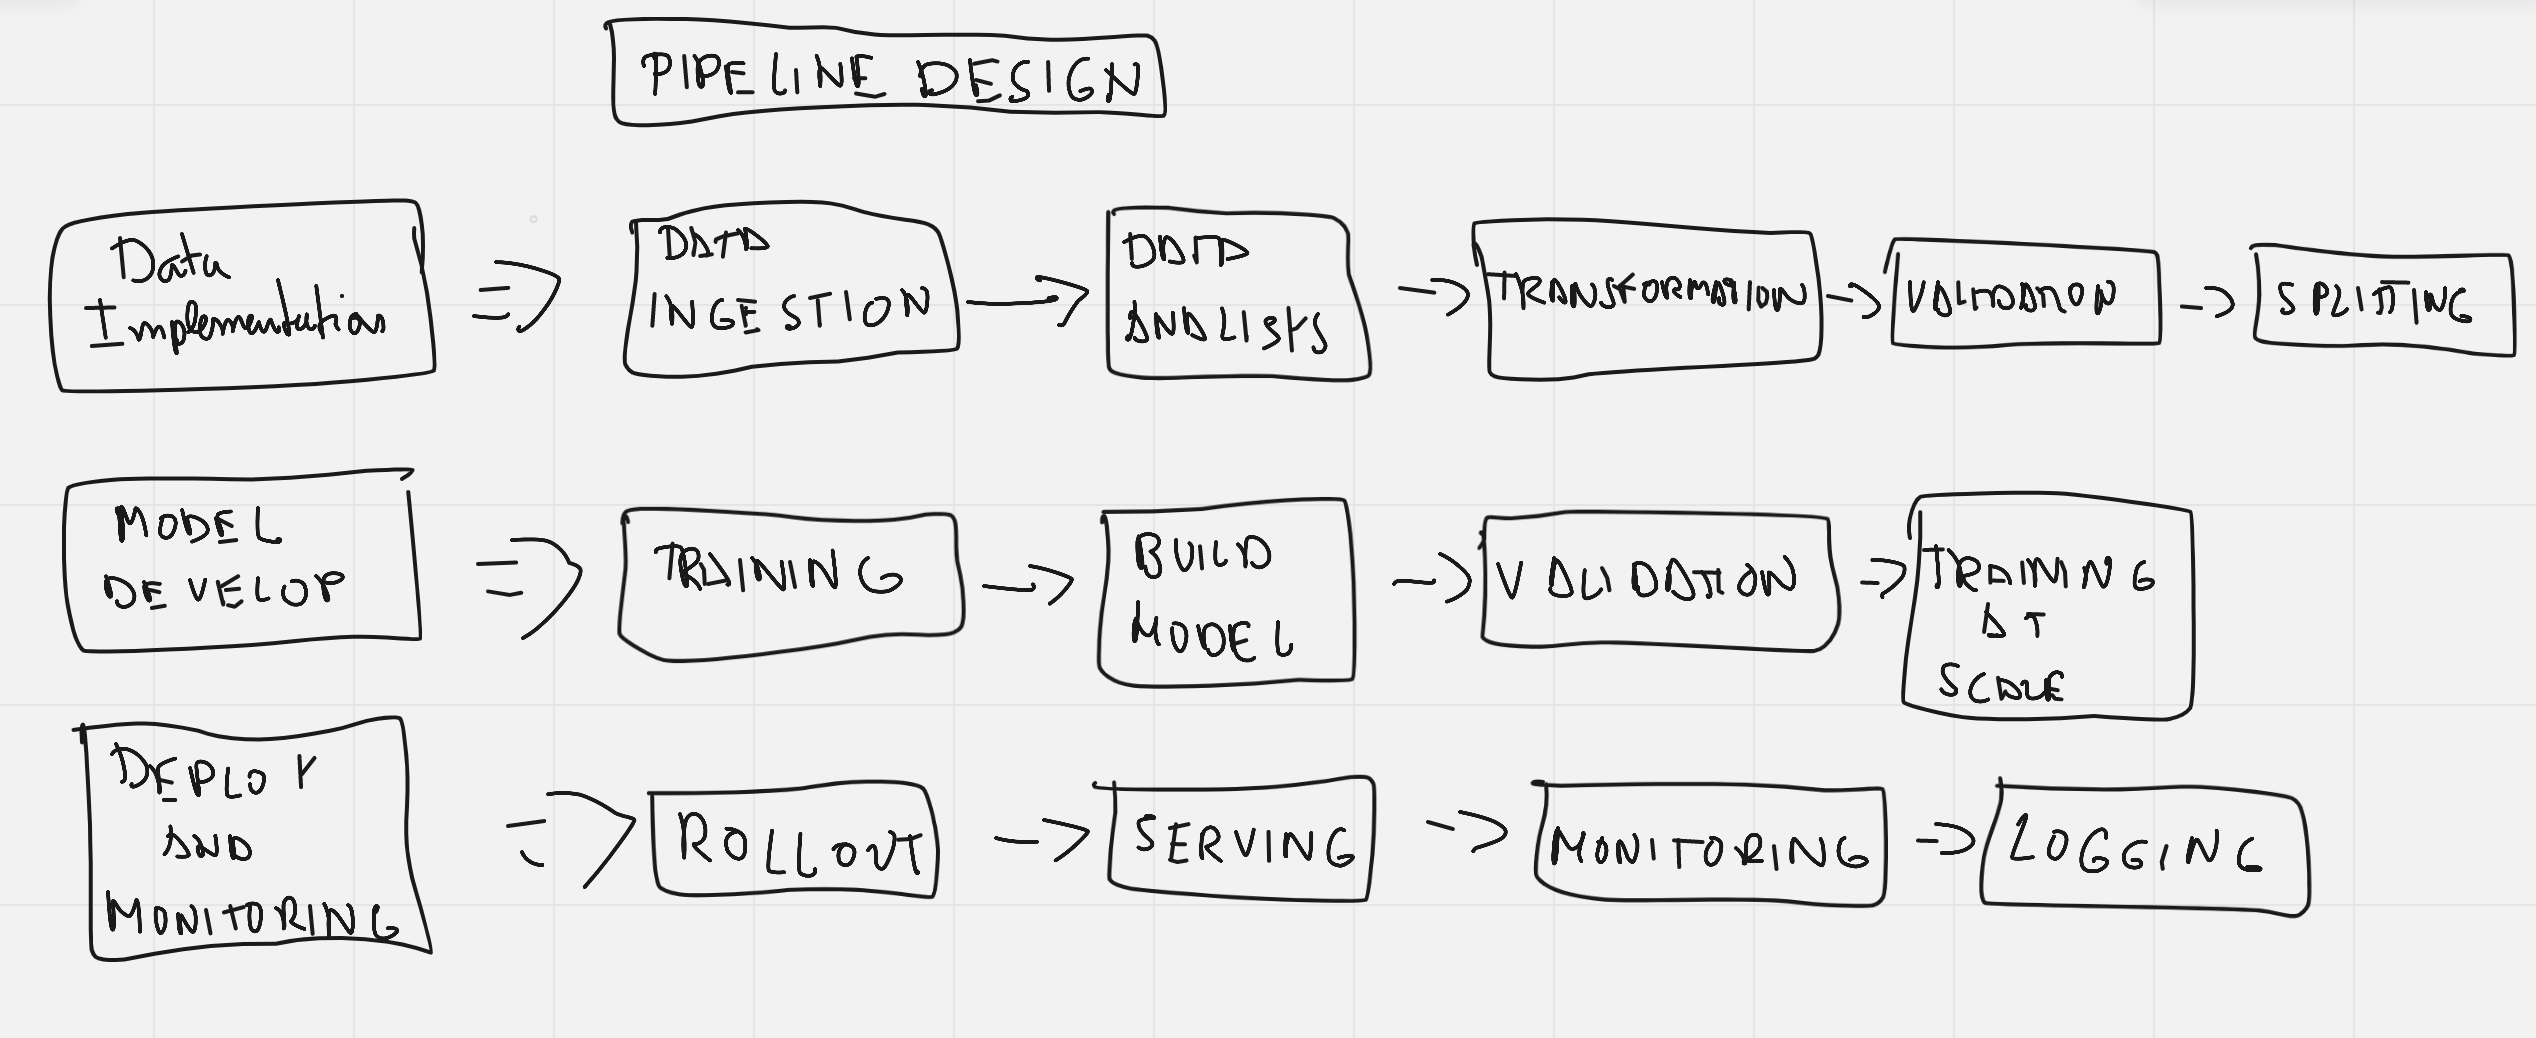 PIPELINE DESIGN
Data
Implementation
DATA
INGESTION
DATA
ANALISYS
TRANSFORMATION
VALIDATION
SPLITTING
MODEL
DEVELOP
TRAINING
BUILD
MODEL
VALIDATION
TRAINING
AT
SCALE
DEPLOY
AND
MONITORING
ROLLOUT
SERVING
MONITORING
LOGGING